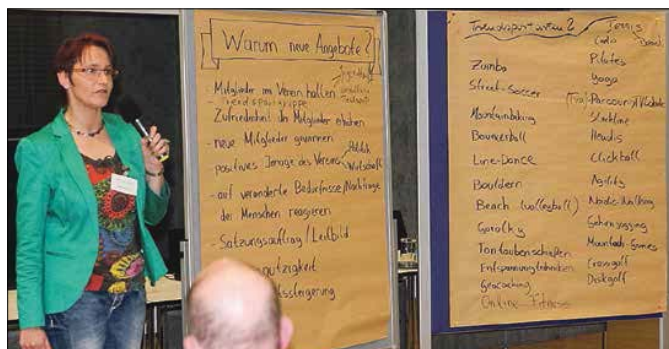 Warum neue Angebote?
- Mitglieder im Verein halten
- Trendsportgruppe
Zufriedenheit der Mitglieder erhöhen
- neue Mitglieder gewinnen
- positives Image des Vereins
Politik
Wirtschaft
- auf veränderte Bedürfnisse/Nachfrage
der Menschen reagieren
- Satzungsauftrag/Leitbild
Trendsportarten?
Zumba
Street-Soccer
Mountainbiking
Line-Dance
Bouldern
Beach (volleyball)
Tontaubenschießen
Entspannungstechniken
Geocaching
Online Fitness
Tennis
Cardio
Beach
Pilates
Yoga
Slackline
Headis
Clickball
Agility
Nordic-Walking
Crossgolf
Diskgolf